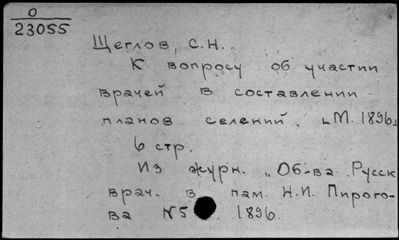 0
23055
Щеглов, С.Н.
К вопросу об участии
врачей в составлении
планов селений. М. 1896
6 стр.
Из журн. „Об-ва Русск
врач. в пам. Н.И. Пирого-
ва N5 1896.